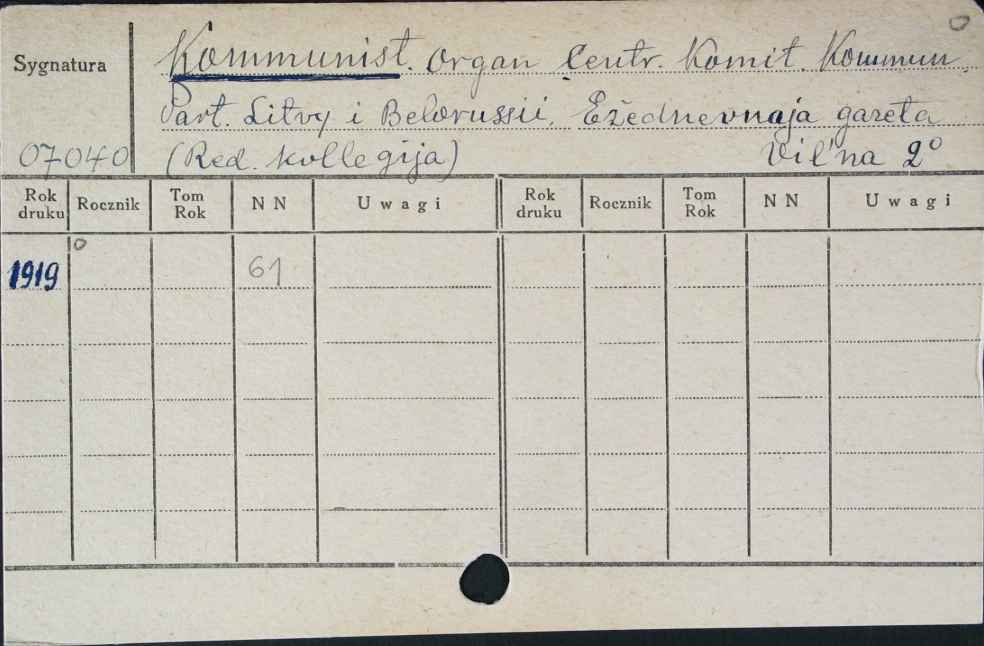 Sygnatura
Kommunist. Organ Centr. Komit. Kommun.
Part. Litvy i Belorussii. Ežednevnaja gazeta
07040 (Red. kollegija) Vil'na 2°
Rok druku Rocznik Tom Rok NN Uwagi Rok druku Rocznik Tom Rok NN Uwagi
1919 61